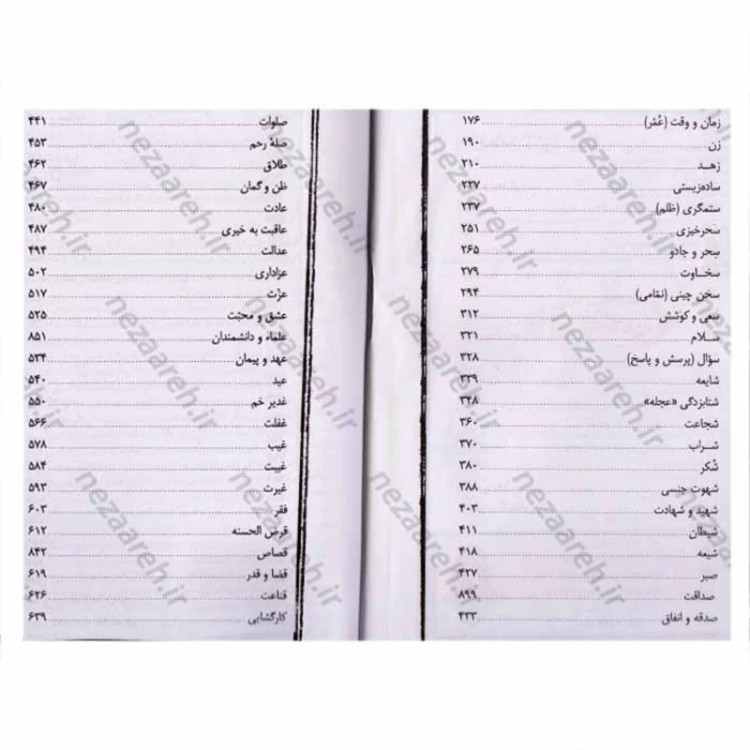 زمان و وقت (عُمْر) ۱۷۶
زن ۱۹۰
زهـد ۲۱۰
ساده‌زیستی ۲۲۷
ستمگری (ظلم) ۲۳۷
سحرخیزی ۲۵۱
سِحر و جادو ۲۶۵
سخـاوت ۲۷۹
سخن چینی (نمّامی) ۲۹۴
سعی و کوشش ۳۱۲
سـلام ۳۲۱
سؤال (پرسش و پاسخ) ۳۲۸
شایعه ۳۳۹
شتابزدگی «عجله» ۳۴۸
شجاعت ۳۶۰
شـراب ۳۷۰
شُکر ۳۸۰
شهوت جنسی ۳۸۸
شهید و شهادت ۴۰۳
شیطان ۴۱۱
شیعه ۴۱۸
صبر ۴۲۷
صداقت ۸۹۹
صدقه و انفاق ۴۳۳
صلوات ۴۴۱
صلهٔ رحم ۴۵۳
طلاق ۴۶۲
ظن و گمان ۴۶۷
عادت ۴۸۰
عاقبت به خیری ۴۸۷
عدالت ۴۹۴
عزاداری ۵۰۲
عزّت ۵۱۷
عشق و محبّت ۵۲۵
علماء و دانشمندان ۸۵۱
عهد و پیمان ۵۳۴
عید ۵۴۰
غدیر خم ۵۵۰
غفلت ۵۶۶
غیب ۵۷۸
غیبت ۵۸۴
غیرت ۵۹۳
فقر ۶۰۳
قرض الحسنه ۶۱۲
قصاص ۸۴۲
قضا و قدر ۶۱۹
قناعت ۶۲۶
کارگشایی ۶۳۹
nezaareh.ir